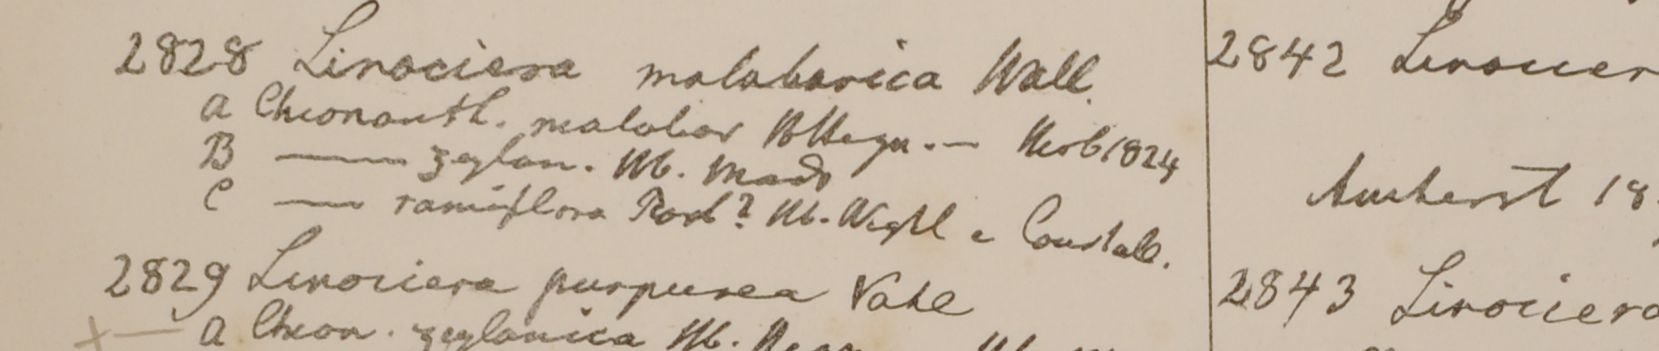 2828 Linociera malabarica Wall.
a Chionanth. malabar B Heyn. — Herb 1824
B — zeylan. Hb. Mads
C — ramiflora Roxb? Hb. Wight e Courtall.
2829 Linociera purpurea Vahl
× — a Chion. zeylanica Hb.
2842 Linocier
Amherst 18
2843 Linociera